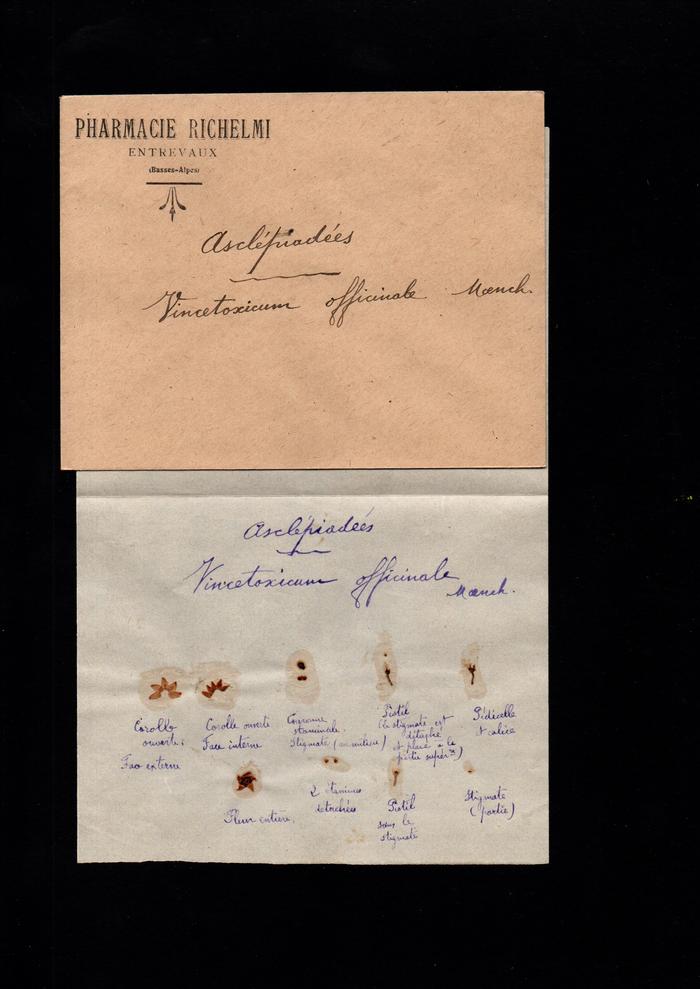 PHARMACIE RICHELMI
ENTREVAUX
(Basses-Alpes)
Asclépiadées
Vincetoxicum officinale Mœnch.
Asclépiadées
Vincetoxicum officinale
Mœnch.
Corolle
ouverte.
Face externe
Corolle ouverte
Face interne
Couronne
staminale.
Stigmate (au milieu)
Pistil
(le stigmate est
détaché
et placé à la
partie supérre)
Pédicelle
et calice
Fleur entière.
2 étamines
détachées
Pistil
sans le
stigmate
Stigmate
(partie)